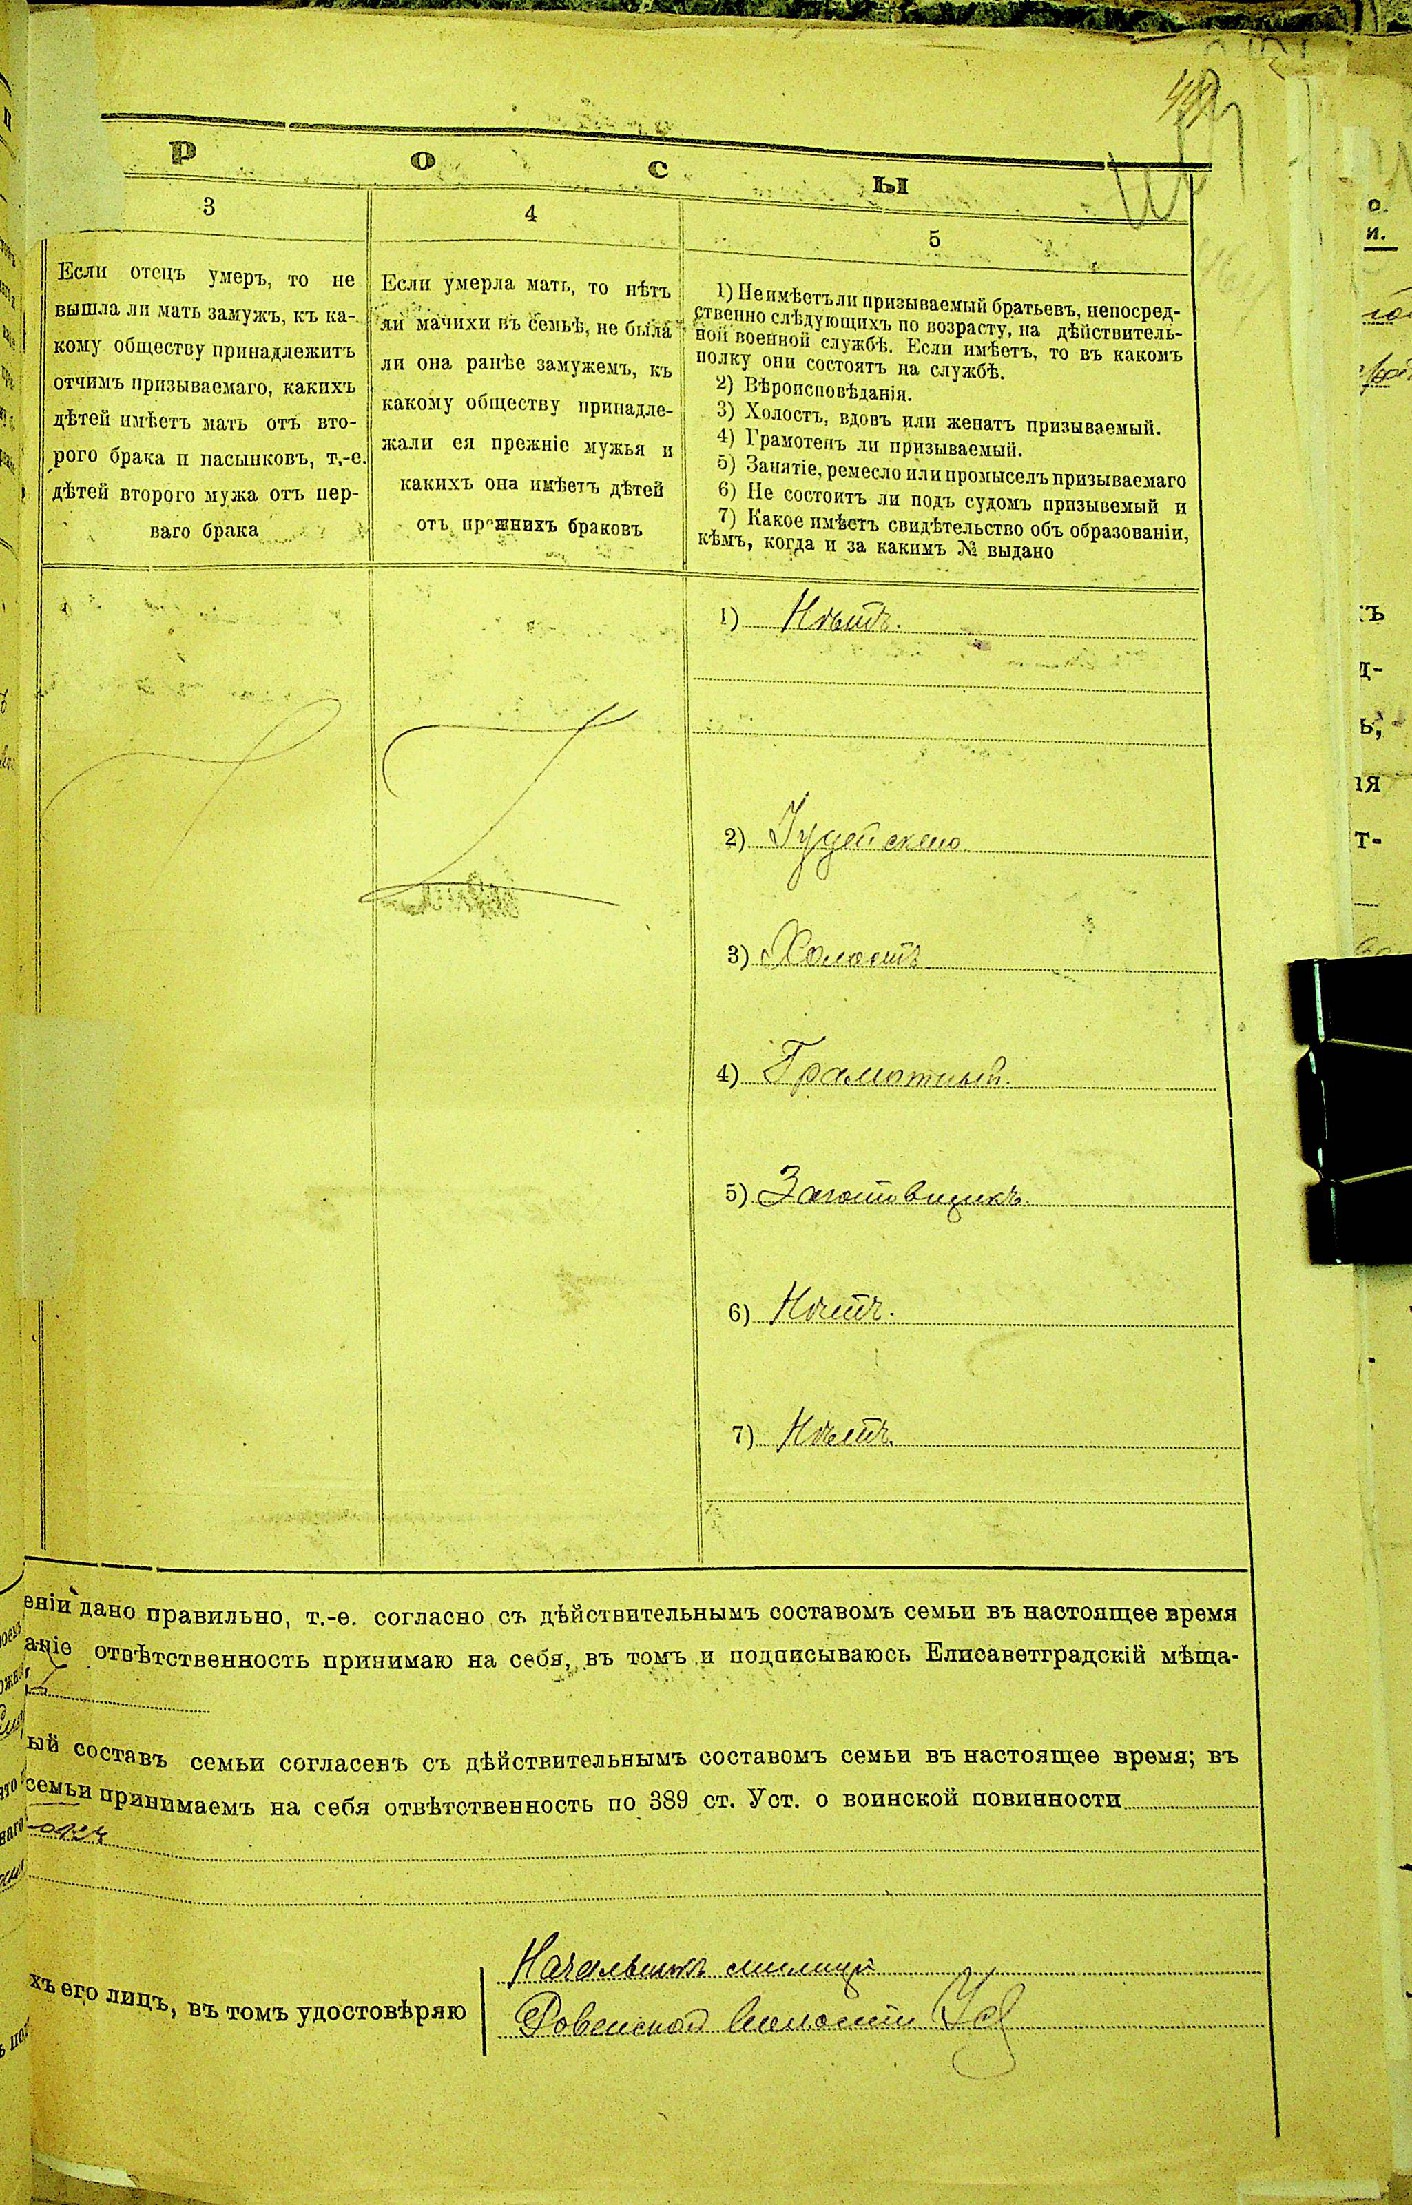 Р О С Ы
3
Если отецъ умеръ, то не
вышла ли мать замужъ, къ ка-
кому обществу принадлежитъ
отчимъ призываемаго, какихъ
дѣтей имѣетъ мать отъ вто-
рого брака и пасынковъ, т.-е.
дѣтей второго мужа отъ пер-
ваго брака
4
Если умерла мать, то нѣтъ
ли мачихи въ семьѣ, не была
ли она ранѣе замужемъ, къ
какому обществу принадле-
жали ея прежніе мужья и
какихъ она имѣетъ дѣтей
отъ прежнихъ браковъ
5
1) Не имѣетъ ли призываемый братьевъ, непосред-
ственно слѣдующихъ по возрасту, на дѣйствитель-
ной военной службѣ. Если имѣетъ, то въ какомъ
полку они состоятъ на службѣ.
2) Вѣроисповѣданія.
3) Холостъ, вдовъ или женатъ призываемый.
4) Грамотенъ ли призываемый.
5) Занятіе, ремесло или промыселъ призываемаго
6) Не состоитъ ли подъ судомъ призывемый и
7) Какое имѣетъ свидѣтельство объ образованіи,
кѣмъ, когда и за какимъ № выдано
1) Нѣтъ.
2) Іудейскаго
3) Холостъ
4) Грамотный.
5) Заготовщикъ.
6) Нѣтъ.
7) Нѣтъ.
еніи дано правильно, т.-е. согласно съ дѣйствительнымъ составомъ семьи въ настоящее время
аніе отвѣтственность принимаю на себя, въ томъ и подписываюсь Елисаветградскій мѣща-
ый составъ семьи согласенъ съ дѣйствительнымъ составомъ семьи въ настоящее время; въ
семьи принимаемъ на себя отвѣтственность по 389 ст. Уст. о воинской повинности
Начальникъ милиціи
хъ его лицъ, въ томъ удостовѣряю
Ровенской волости